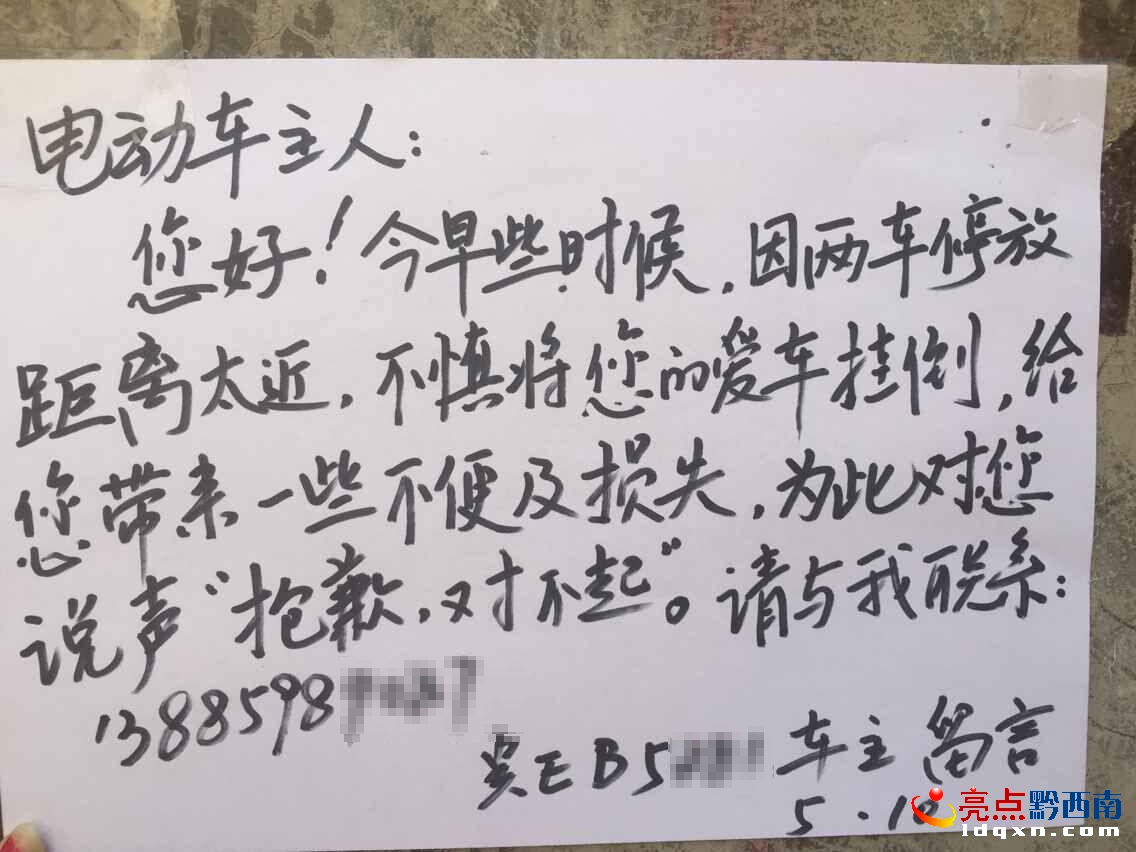 电动车主人:
您好!今早些时候,因两车停放
距离太近,不慎将您的爱车挂倒,给
您带来一些不便及损失,为此对您
说声“抱歉,对不起”。请与我联系:
1388598
贵EB5 车主留言
5.10
亮点黔西南
ldqxn.com